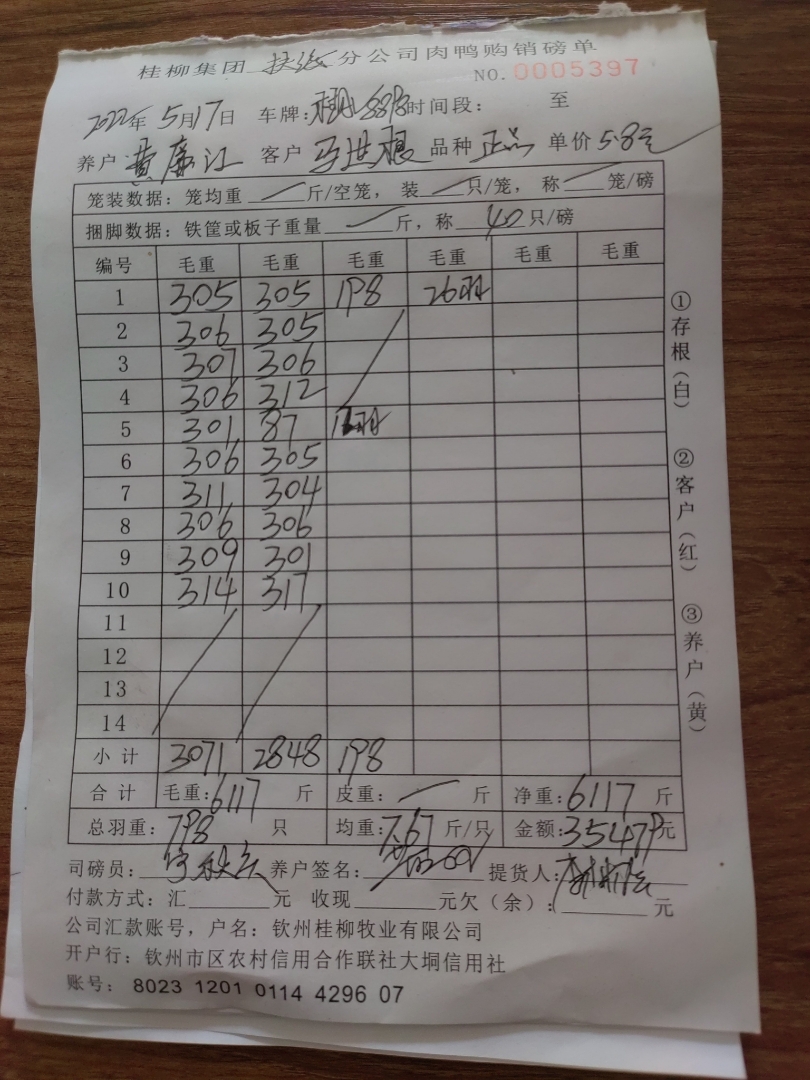 桂柳集团 扶绥 分公司肉鸭购销磅单
NO.0005397
2022年5月17日 车牌: 时间段: 至
养户 黄廉江 客户 马世根 品种 正品 单价 5.8元
笼装数据: 笼均重 斤/空笼, 装 只/笼, 称 笼/磅
捆脚数据: 铁筐或板子重量 斤, 称 40 只/磅
编号 毛重 毛重 毛重 毛重 毛重 毛重
1 305 305 198 26羽
2 306 305
3 307 306
4 306 312
5 301 87 羽
6 306 305
7 311 304
8 306 306
9 309 301
10 314 317
11
12
13
14
小计 3071 2848 198
合计 毛重:6117 斤 皮重: 斤 净重:6117 斤
总羽重:798 只 均重:7.67 斤/只 金额:35479元
司磅员: 养户签名: 提货人:
付款方式: 汇 元 收现 元欠(余): 元
公司汇款账号, 户名: 钦州桂柳牧业有限公司
开户行: 钦州市区农村信用合作联社大垌信用社
账号: 8023 1201 0114 4296 07
①存根(白)
②客户(红)
③养户(黄)